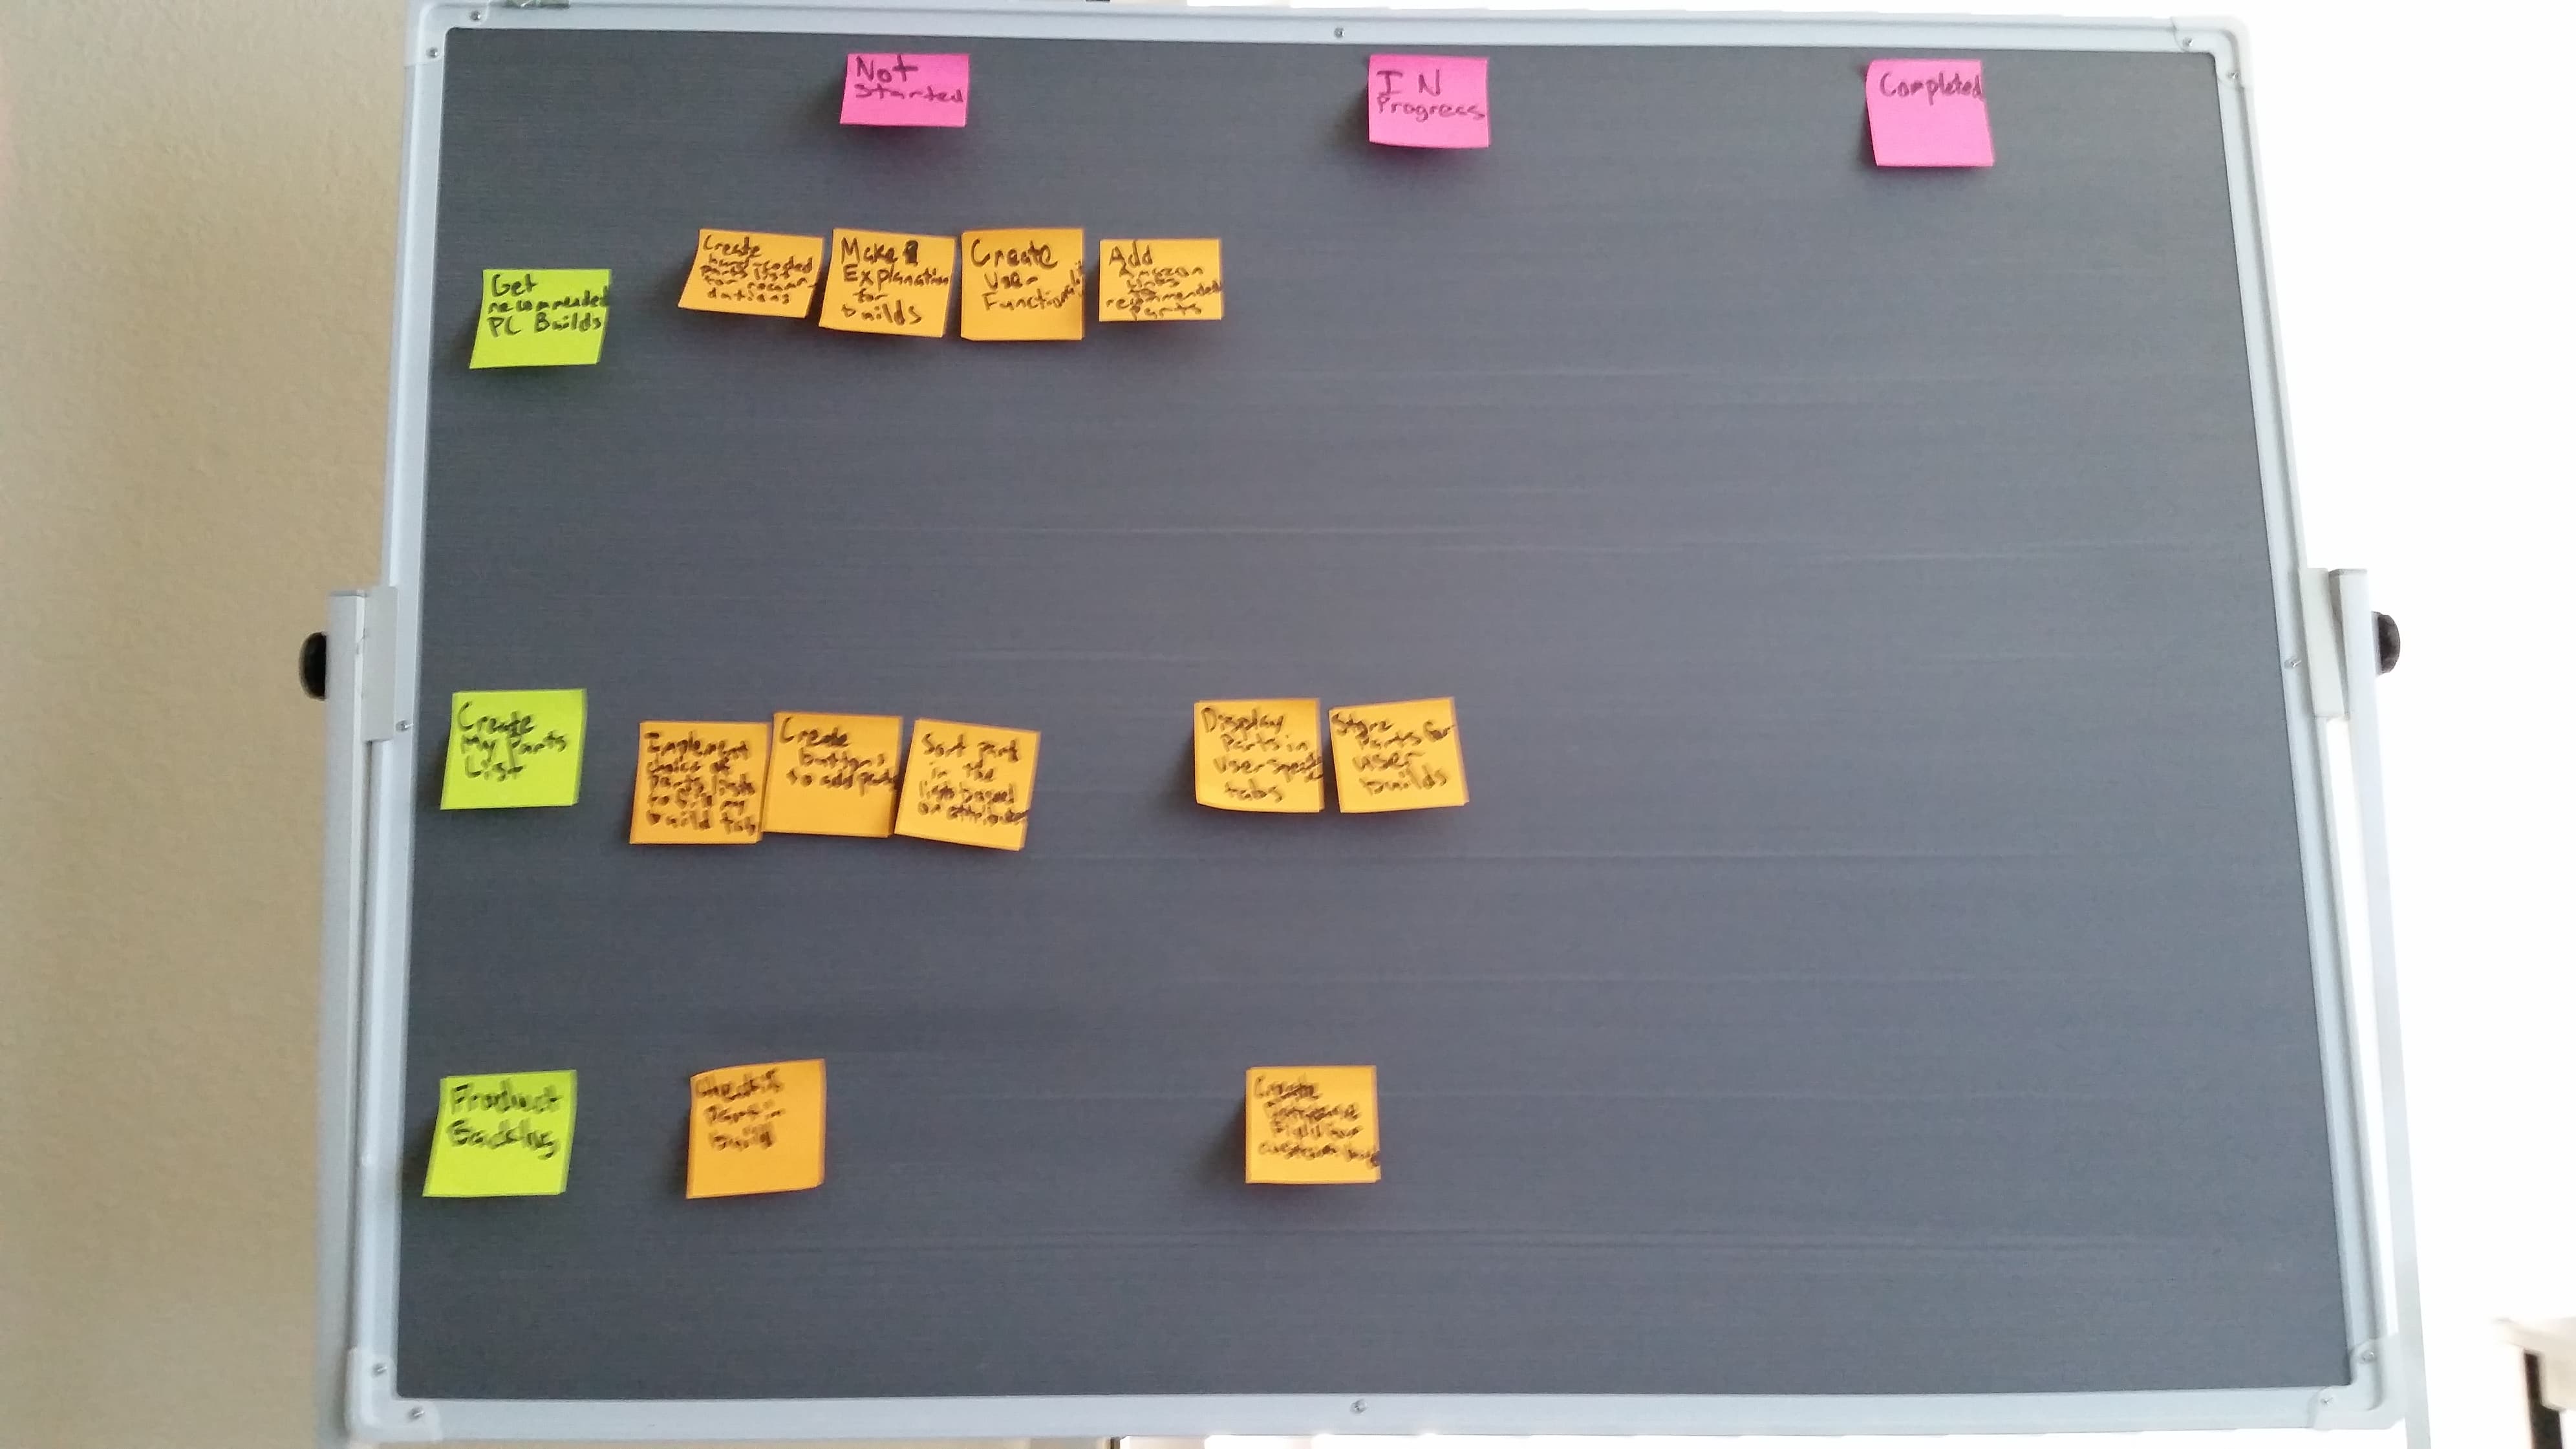 Not
Started
IN
Progress
Completed
Get
recommended
PC Builds
Create
hard-coded
parts list
for recomm-
dations
Make
Explanation
for
builds
Create
User
Functionality
Add
Amazon
links
to
recommended
parts
Create
My Parts
List
Implement
choice of
parts lists
to fill my
build tab
Create
buttons
to add parts
Sort part
in the
lists based
on attributes
Display
Parts in
User specific
tabs
Store
Parts for
user
builds
Product
Backlog
build
Create